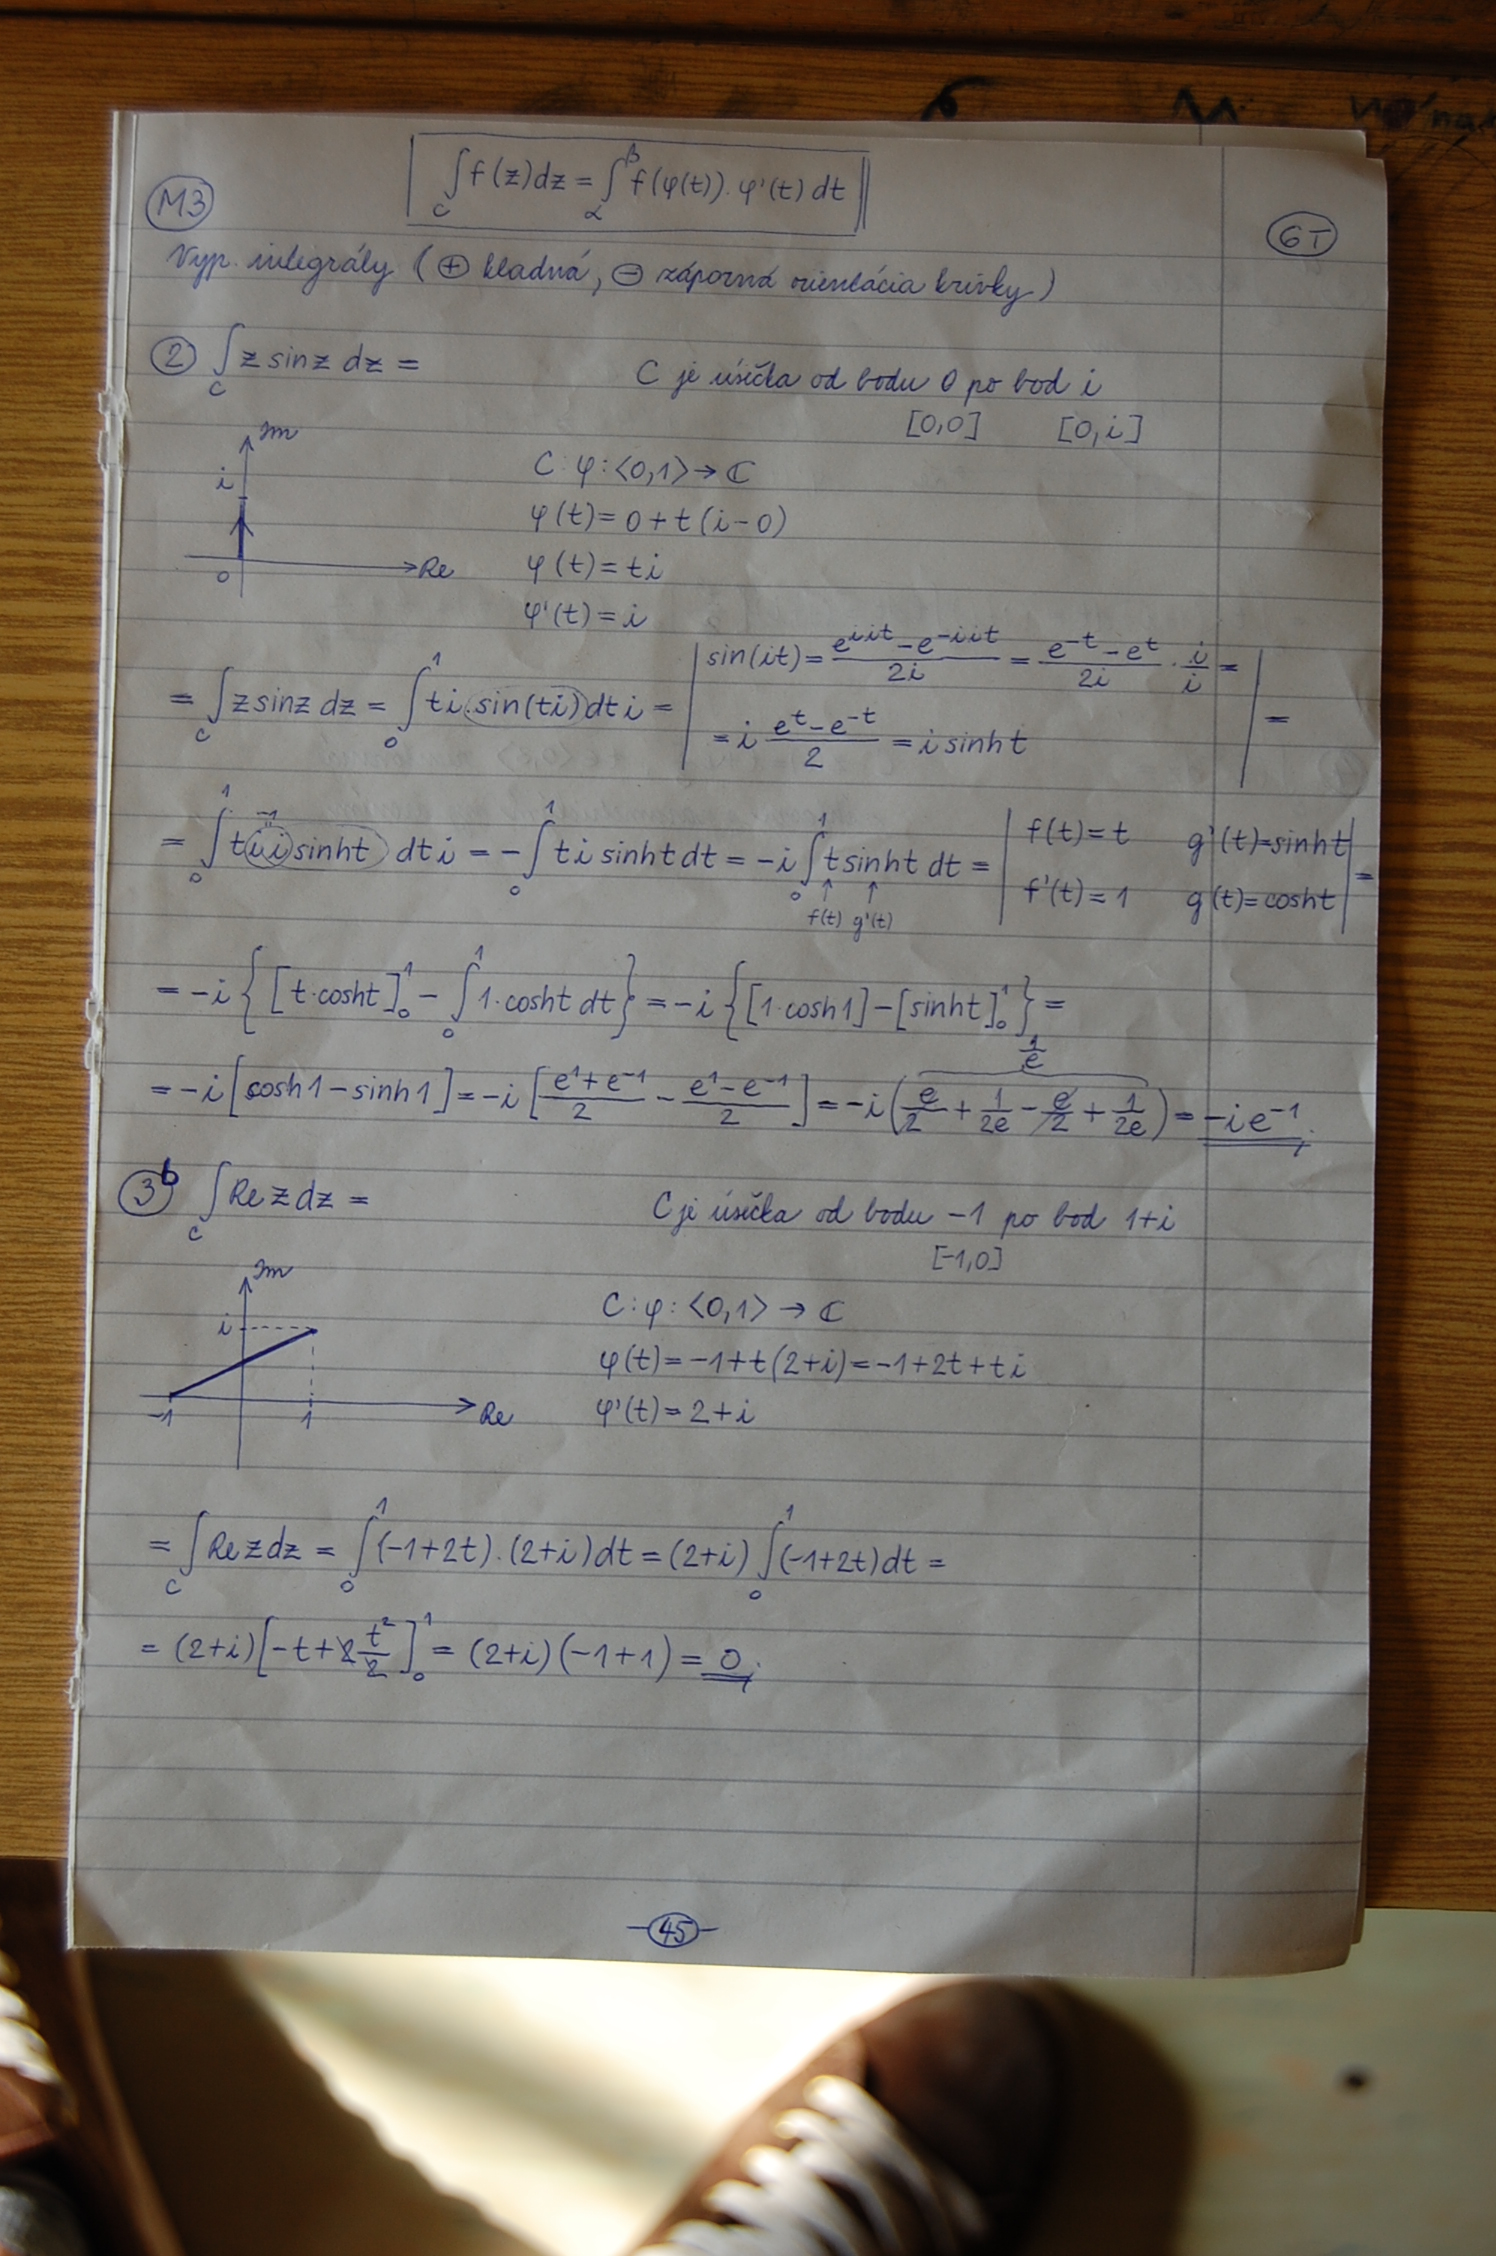 ∫_C f(z)dz = ∫_α^β f(φ(t)).φ'(t) dt
M3
6T
Vyp. integrály (⊕ kladná, ⊖ záporná orientácia krivky)
② ∫_C z sin z dz = C je úsečka od bodu 0 po bod i
[0,0] [0,i]
Im
i
0
Re
C: φ: <0,1> → ℂ
φ(t) = 0 + t(i-0)
φ(t) = ti
φ'(t) = i
= ∫_C z sin z dz = ∫_0^1 ti.sin(ti) dt i = | sin(it) = (e^{iit} - e^{-iit})/2i = (e^{-t} - e^t)/2i · i/i =
= i (e^t - e^{-t})/2 = i sinh t | =
= ∫_0^1 t i i sinh t dt i = -∫_0^1 ti sinh t dt = -i ∫_0^1 t sinh t dt = | f(t) = t g'(t) = sinh t
-1
f(t) g'(t)
f'(t) = 1 g(t) = cosh t | =
= -i {[t·cosh t]_0^1 - ∫_0^1 1·cosh t dt} = -i {[1·cosh 1] - [sinh t]_0^1} =
1/e
= -i [cosh 1 - sinh 1] = -i [(e^1 + e^{-1})/2 - (e^1 - e^{-1})/2] = -i (e/2 + 1/2e - e/2 + 1/2e) = -i e^{-1}
③b ∫_C Re z dz = C je úsečka od bodu -1 po bod 1+i
[-1,0]
Im
i
-1
1
Re
C: φ: <0,1> → ℂ
φ(t) = -1 + t(2+i) = -1 + 2t + ti
φ'(t) = 2+i
= ∫_C Re z dz = ∫_0^1 (-1+2t).(2+i)dt = (2+i) ∫_0^1 (-1+2t)dt =
= (2+i)[-t + 2 t²/2]_0^1 = (2+i)(-1+1) = 0
45